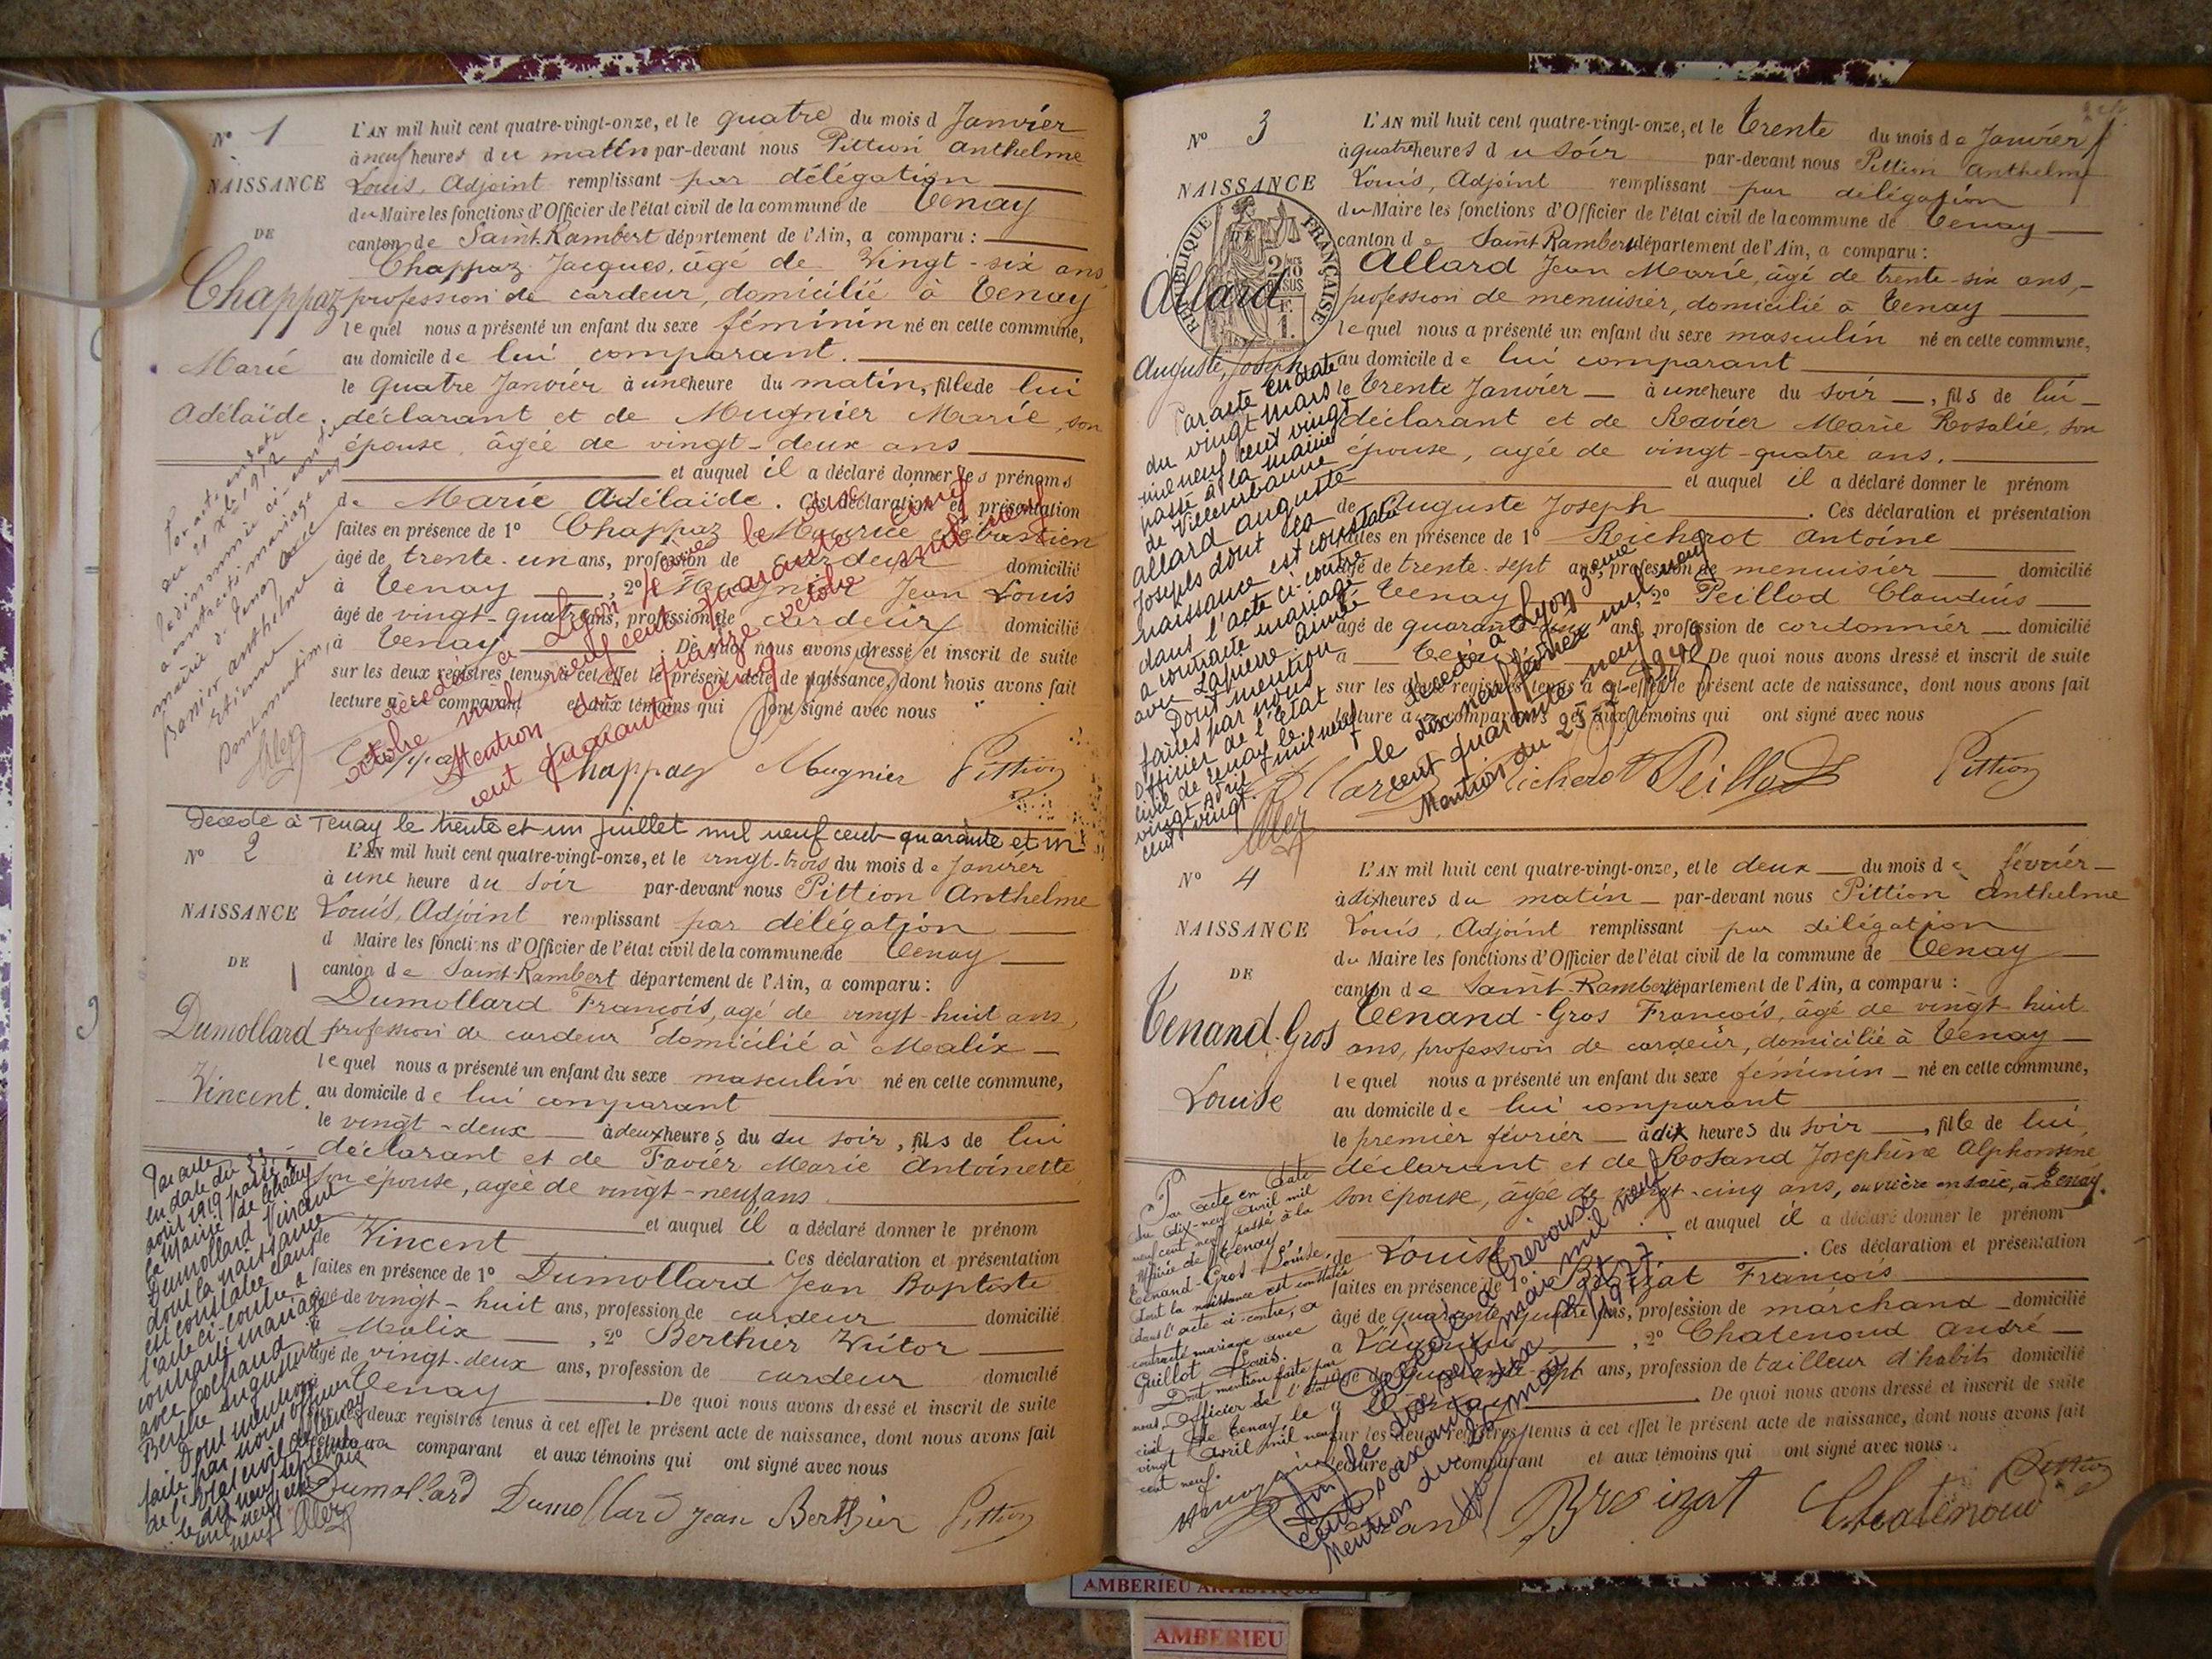 N° 1
NAISSANCE
DE
Chappaz
Marie
Adélaïde.
L'AN mil huit cent quatre-vingt-onze, et le quatre du mois d Janvier
à neuf heures du matin par-devant nous Pittion Anthelme
Louis, Adjoint remplissant par délégation
du Maire les fonctions d'Officier de l'état civil de la commune de Tenay
canton de Saint-Rambert département de l'Ain, a comparu :
Chappaz Jacques, âgé de vingt-six ans,
profession de cardeur, domicilié à Tenay
lequel nous a présenté un enfant du sexe féminin né en cette commune,
au domicile de lui comparant.
le quatre Janvier à une heure du matin, fille de lui
déclarant et de Mugnier Marie, son
épouse, âgée de vingt-deux ans
et auquel il a déclaré donner les prénoms
de Marie Adélaïde. Ces déclaration et présentation
faites en présence de 1° Chappaz Maurice Sébastien
âgé de trente-un ans, profession de cardeur domicilié
à Tenay, 2° Mugnier Jean Louis
âgé de vingt-quatre ans, profession de cardeur domicilié
à Tenay. De quoi nous avons dressé et inscrit de suite
sur les deux registres tenus à cet effet le présent acte de naissance, dont nous avons fait
lecture au comparant et aux témoins qui ont signé avec nous
Chappaz Mugnier Pittion
Par acte en date
du 21 Xbre 1912
la dénommée ci-contre
a contracté mariage en
mairie de Tenay avec
anthelme
Etienne
Dont mention,
Décédée à Lyon le onze
octobre mil neuf cent quarante cinq
Mention du quinze octobre mil neuf
cent quarante cinq
Décédé à Tenay le trente et un juillet mil neuf cent quarante et un
N° 2
NAISSANCE
DE
Dumollard
Vincent.
L'AN mil huit cent quatre-vingt-onze, et le vingt-trois du mois de Janvier
à une heure du soir par-devant nous Pittion Anthelme
Louis, Adjoint remplissant par délégation
d Maire les fonctions d'Officier de l'état civil de la commune de Tenay
canton de Saint-Rambert département de l'Ain, a comparu :
Dumollard François, âgé de vingt-huit ans,
profession de cardeur domicilié à Malix
lequel nous a présenté un enfant du sexe masculin né en cette commune,
au domicile de lui comparant
le vingt-deux à deux heures du du soir, fils de lui
déclarant et de Favier Marie Antoinette
son épouse, âgée de vingt-neuf ans
et auquel il a déclaré donner le prénom
de Vincent. Ces déclaration et présentation
faites en présence de 1° Dumollard Jean Baptiste
âgé de vingt-huit ans, profession de cardeur domicilié
à Malix, 2° Berthier Victor
âgé de vingt-deux ans, profession de cardeur domicilié
à Tenay. De quoi nous avons dressé et inscrit de suite
sur les deux registres tenus à cet effet le présent acte de naissance, dont nous avons fait
lecture au comparant et aux témoins qui ont signé avec nous
Dumollard Dumollard Jean Berthier Pittion
Par acte
en date du
août 1919 passé à
la Mairie de
Dumollard Vincent
dont la naissance
est constatée dans
l'acte ci-contre a
contracté mariage
avec Cochand
Berthe Augustine
Dont mention
faite par nous officier
de l'état civil de Tenay
le dix neuf septembre
mil neuf cent dix
neuf
N° 3
NAISSANCE
RÉPUBLIQUE FRANÇAISE
Allard
Auguste, Joseph
L'AN mil huit cent quatre-vingt-onze, et le Trente du mois de Janvier
à quatre heures du soir par-devant nous Pittion Anthelme
Louis, Adjoint remplissant par délégation
du Maire les fonctions d'Officier de l'état civil de la commune de Tenay
canton de Saint-Rambert département de l'Ain, a comparu :
Allard Jean Marie, âgé de trente-six ans,
profession de menuisier, domicilié à Tenay
lequel nous a présenté un enfant du sexe masculin né en cette commune,
au domicile de lui comparant
le Trente Janvier à une heure du soir, fils de lui
déclarant et de Ravier Marie Rosalie, son
épouse, âgée de vingt-quatre ans.
et auquel il a déclaré donner le prénom
de Auguste Joseph. Ces déclaration et présentation
faites en présence de 1° Richerot Antoine
âgé de trente-sept ans, profession de menuisier domicilié
à Tenay, 2° Peillod Claudius
âgé de quarante ans, profession de cordonnier domicilié
à Tenay. De quoi nous avons dressé et inscrit de suite
sur les deux registres tenus à cet effet le présent acte de naissance, dont nous avons fait
lecture au comparant et aux témoins qui ont signé avec nous
Allard Richerot Peillod Pittion
Par acte en date
du vingt mars
mil neuf cent vingt
passé à la mairie
de Villeurbanne
Allard Auguste
Joseph dont la
naissance est constatée
dans l'acte ci-contre
a contracté mariage
avec Aimée
Dont mention
faite par nous
Officier de l'état
civil de Tenay le
vingt avril mil neuf
cent vingt.
Décédé à Lyon 3eme
le dix neuf février mil neuf
cent quarante neuf
Mention du 25 2 1949
N° 4
NAISSANCE
DE
Tenand-Gros
Louise
L'AN mil huit cent quatre-vingt-onze, et le deux du mois de février
à dix heures du matin par-devant nous Pittion Anthelme
Louis, Adjoint remplissant par délégation
du Maire les fonctions d'Officier de l'état civil de la commune de Tenay
canton de Saint-Rambert département de l'Ain, a comparu :
Tenand-Gros François, âgé de vingt-huit
ans, profession de cardeur, domicilié à Tenay
lequel nous a présenté un enfant du sexe féminin né en cette commune,
au domicile de lui comparant
le premier février à dix heures du soir, fille de lui
déclarant et de Rosand Josephine Alphonsine
son épouse, âgée de vingt-cinq ans, ouvrière en soie, à Tenay.
et auquel il a déclaré donner le prénom
de Louise. Ces déclaration et présentation
faites en présence de 1° François
âgé de quarante-quatre ans, profession de marchand domicilié
à, 2° Chatenoud André
âgé de quarante-sept ans, profession de tailleur d'habits domicilié
à Tenay. De quoi nous avons dressé et inscrit de suite
sur les deux registres tenus à cet effet le présent acte de naissance, dont nous avons fait
lecture au comparant et aux témoins qui ont signé avec nous.
Chatenoud Pittion
Par acte en date
du dix-neuf avril mil
neuf cent neuf passé à la
Mairie de Tenay,
Tenand-Gros Louise,
dont la naissance est constatée
dans l'acte ci-contre, a
contracté mariage avec
Guillot Louis.
Dont mention faite par
nous, Officier de l'état
civil de Tenay le
vingt avril mil neuf
cent neuf.
Décédée à Trévoux
(Ain) le dix sept mars mil neuf
cent soixante dix sept.
Mention du 23 mars 1977.
AMBERIEU ARTISTIQUE
AMBERIEU